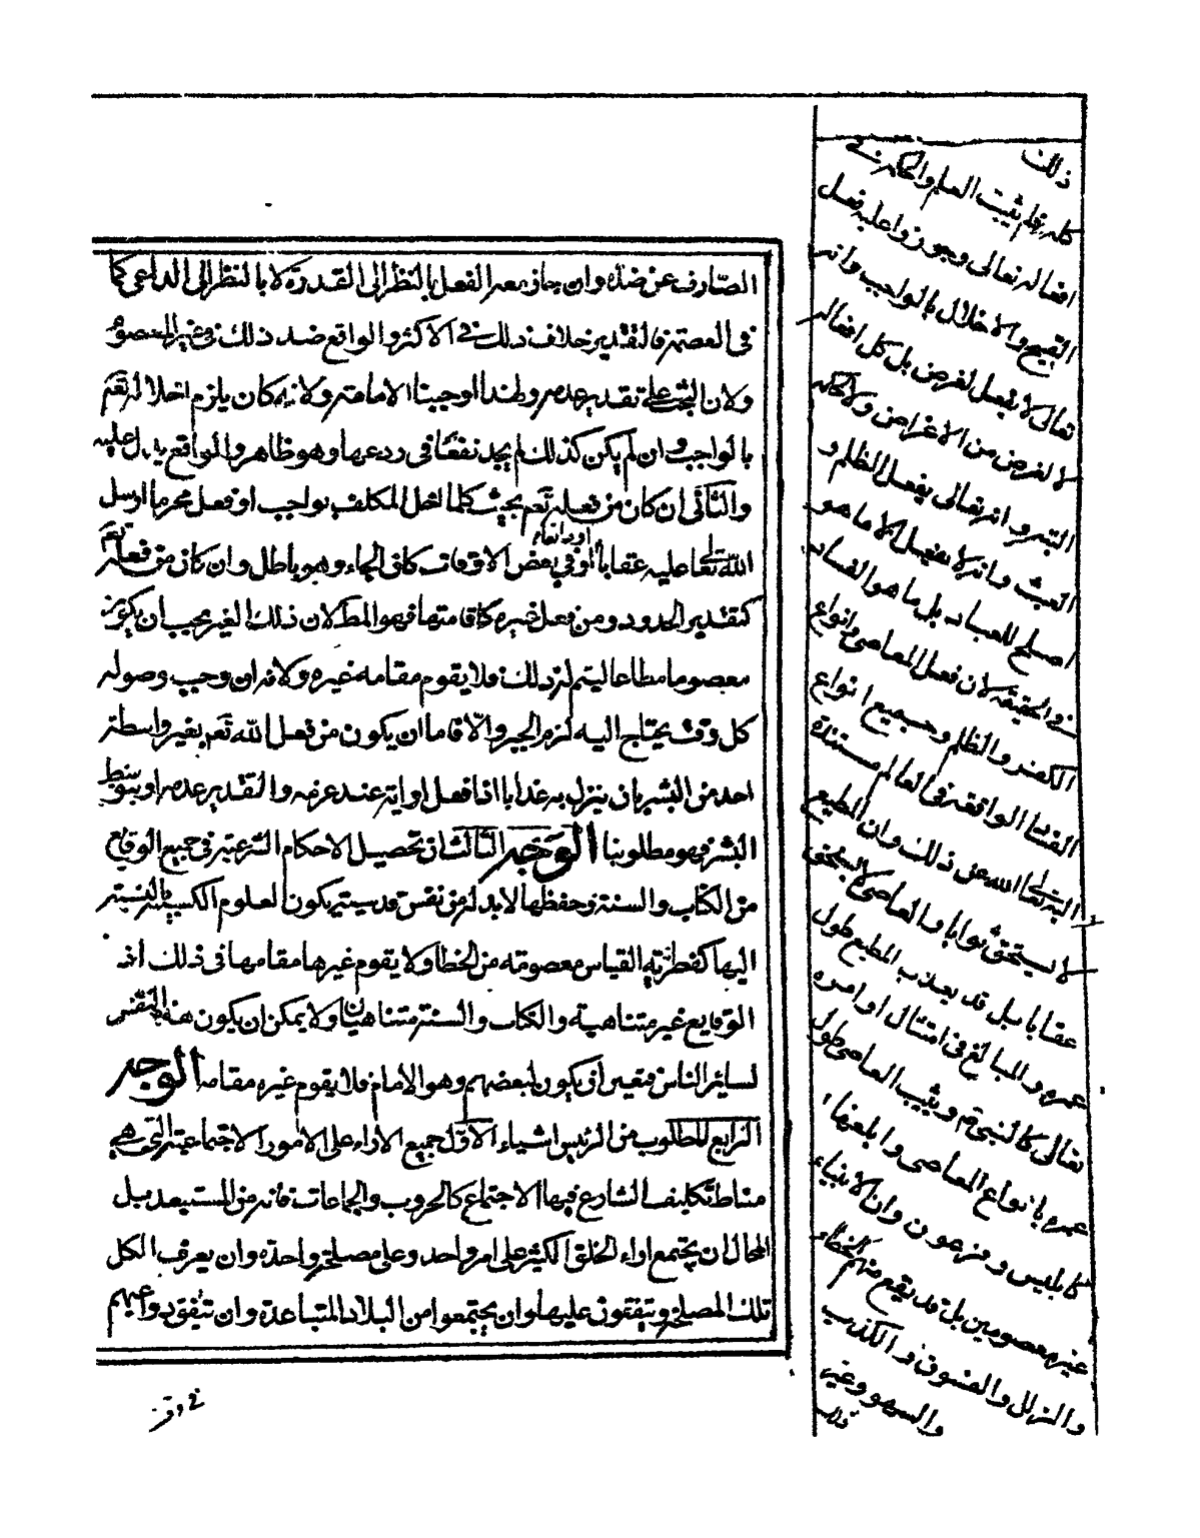 الصّارف عن ضدّه وان جاز معه الفعل بالنظر الى القدرة لا بالنظر الى الداعى كما
فى العصمة فالتقدير خلاف ذلك فى الاكثر والواقع ضد ذلك فى غير المعصوم
ولان البحث على تقدير عدمه ولهذا اوجبنا الامامة ولانه كان يلزم اخلاله تعم
بالواجب وان لم يكن كذلك لم يجد نفعًا فى ردعها وهو ظاهر والواقع يدل عليه
والثانى ان كان من فعله تعم بحيث كلما اخل المكلف بواجب او فعل محرما ارسل
الله تعالى عليه عقابا او فى بعض الاوقات كان الجاء وهو باطل وان كان من فعله تعم
كتقدير الحدود ومن فعل غيره كاقامتها فهو المط لان ذلك الغير يجب ان يكون
معصوما مطاعا ليتم له ذلك فلا يقوم مقامه غيره ولانه ان وجب وصوله
كل وقت يحتاج اليه لزم الجبر والّا فاما ان يكون من فعل الله تعم بغير واسطة
احد من البشر بان ينزل به عذابا اذا فعل او اية عند عزمه والتقدير عدمه او بتوسط
البشر فهو مطلوبنا الوجه الثالث ان تحصيل الاحكام الشرعية فى جميع الوقايع
من الكتاب والسنة وحفظها لا بد له من نفس قدسية يكون العلوم الكسبية بالنسبة
اليها كفطرية القياس معصومة من الخطا ولا يقوم غيرها مقامها فى ذلك اذ
الوقايع غير متناهية والكتاب والسنة متناهيان ولا يمكن ان يكون هذه النفس
لسائر الناس فتعين ان يكون لبعضهم وهو الامام فلا يقوم غيره مقامه الوجه
الرابع المطلوب من الرئيس اشياء الاول جميع الاراء على الامور الاجتماعية التى هى
مناط تكليف الشارع فيها الاجتماع كالحروب والجماعات فانه من المستبعد بل
المحال ان يجتمع اراء الخلق الكثير على امر واحد وعلى مصلحة واحدة وان يعرف الكل
تلك المصلحة ويتفقون عليها وان يجتمعوا من البلاد المتباعدة وان تتفق دواعيهم
ذلك
كله فلم يثبت العلم والحكم فى
افعاله تعالى وجوزوا عليه فعل
القبيح والاخلال بالواجب وانه
تعالى لا يفعل لغرض بل كل افعاله
لا لغرض من الاغراض ولا لحكمة
البتة وانه تعالى يفعل الظلم و
العبث وانه لا يفعل الا ما هو
اصلح للعباد بل ما هو الفساد
فى الحقيقة لان فعل المعاصى وانواع
الكفر والظلم وجميع انواع
الفساد الواقعة فى العالم مستندة
اليه تعالى الله عن ذلك وان المطيع
لا يستحق ثوابا والعاصى لا يستحق
عقابا بل قد يعذب المطيع طول
عمره والمبالغ فى امتثال اوامره
تعالى كالنبى ص ويثيب العاصى طول
عمره بانواع المعاصى وابلغها
كابليس وفرعون وان الانبياء
غير معصومين بل قد يقع منهم الخطاء
والزلل والفسوق والكذب
والسهو وغير
ذلك
فى وقت